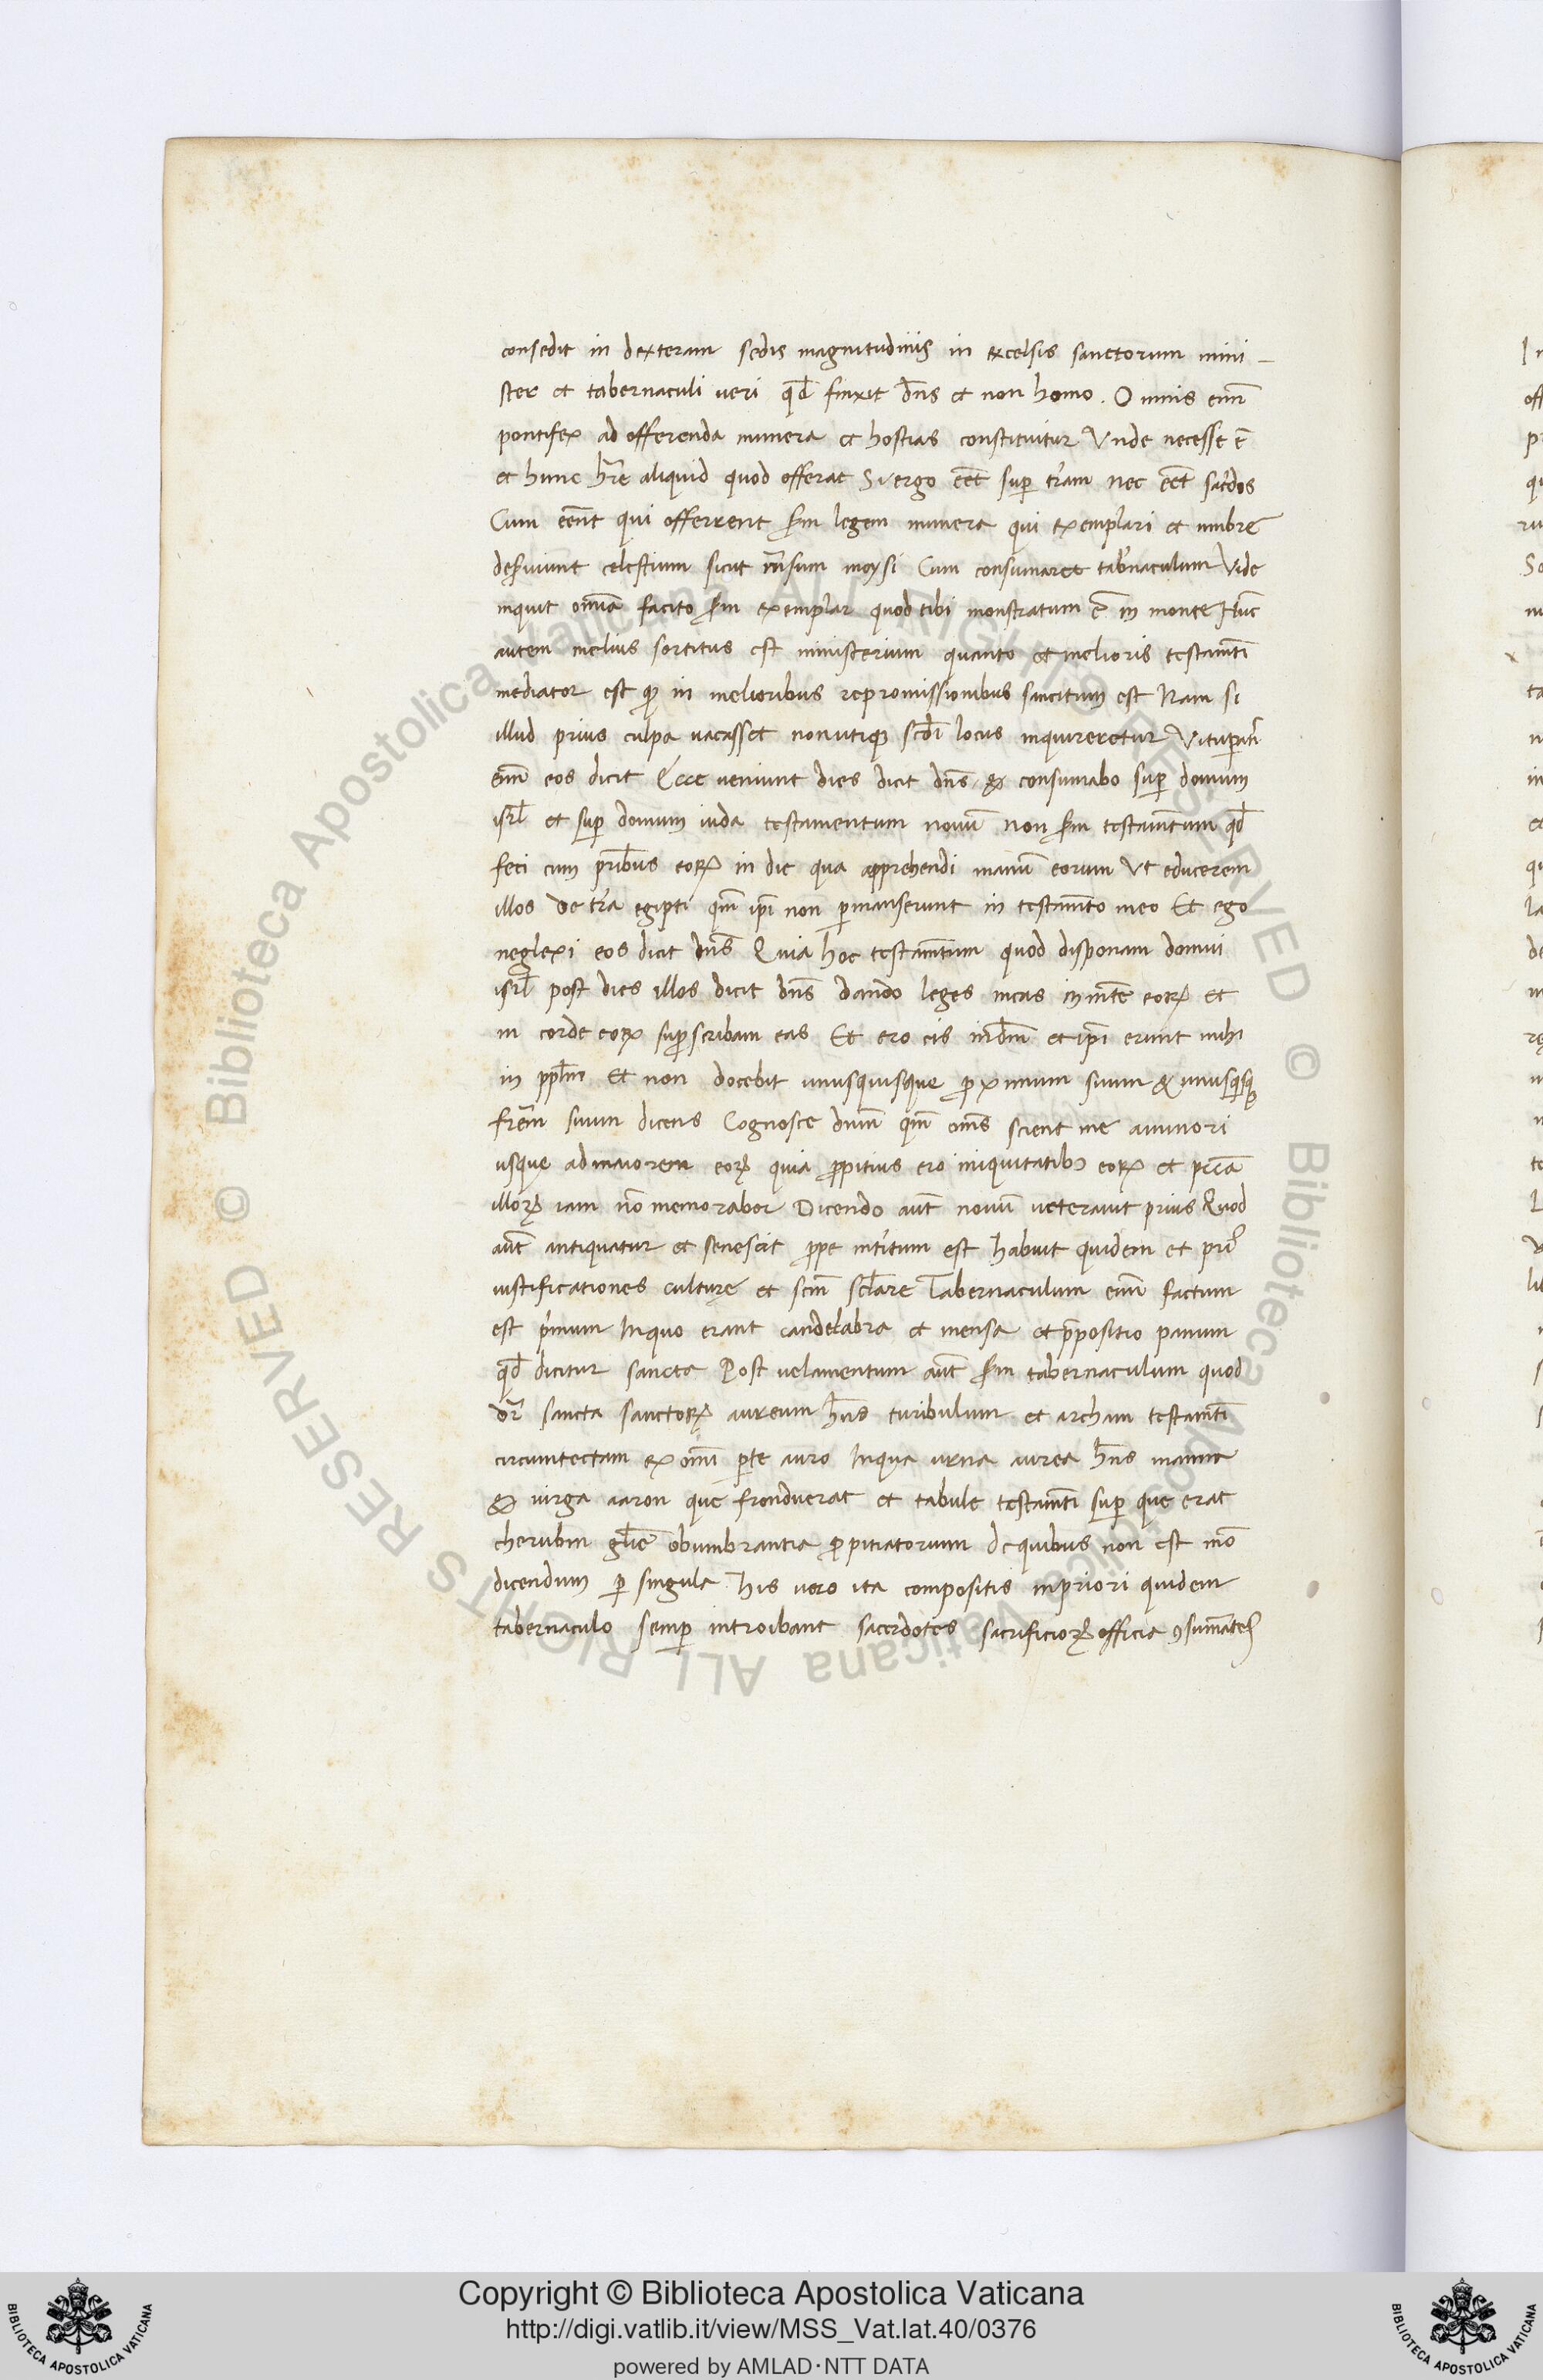 consedit in dexteram sedis magnitudinis in excelsis sanctorum mini-
ster et tabernaculi veri qd̄ finxit dn̄s et non homo. Omnis enī
pontifex ad offerenda munera et hostias constituitur Unde necesse ē
et hunc hr̄e aliquid quod offerat Si ergo eēt suꝑ tr̄am nec eēt sac̄dos
Cum eēnt qui offerrent s̄m legem munera qui exemplari et umbrę
des̄viunt celestium sicut rn̄sum moysi Cum consumaret tab̄naculum Vide
inquit omīa facito s̄m exemplar quod tibi monstratum ē in monte Nūc
autem melius sortitus est ministerium quanto et melioris testam̄ti
mediator est qͫ in melioribus repromissionibus sancitum est Nam si
illud prius culpa vacasset non utiqꝫ scd̄i locus inquireretur Vituꝑās
enī eos dicit Ecce veniunt dies dicit dn̄s & consumabo suꝑ domum
isrl̄ et suꝑ domum iuda testamentum novū non s̄m testam̄tum qd̄
feci cum pr̄ibus eoꝝ in die qua apprehendi manū eorum Ut educerem
illos de tr̄a egipti qm̄ ip̄i non ꝑmanserunt in testam̄to meo Et ego
neglexi eos dicit dn̄s Quia hoc testam̄tum quod disponam domui
isrl̄ post dies illos dicit dn̄s dando leges meas in mn̄te eoꝝ et
in corde eoꝝ suꝑscribam eas Et ero eis in dm̄ et ip̄i erunt mihi
in ppl̄m Et non docebit unusquisque ꝓximum suum & unusqͥsqꝫ
frēm suum dicens Cognosce dnm̄ qm̄ oms̄ scient me a minori
usque ad maiorem eoꝝ quia ꝓpitius ero iniquitatibꝫ eoꝝ et pcc̄a
illoꝝ iam nō memorabor Dicendo aūt novū veteravit prius Quod
aūt antiquatur et senescit ꝓpe int̄itum est habuit quidem et priꝰ
iustificationes culturę et scm̄ scl̄are Tabernaculum enī factum
est pͥmum In quo erant candelabra et mensa et p̄positio panum
qd̄ dicitur sancta Post velamentum aūt s̄m tabernaculum quod
dr̄ sancta sanctoꝝ aureum hn̄s turibulum et archam testam̄ti
circumtectam ex omī ꝑte auro In qua urna aurea hn̄s manna
& virga aaron que fronduerat et tabule testam̄ti suꝑ que erat
cherubin gl̄ie obumbrantia ꝓpitiatorum de quibus non est mō
dicendum ꝑ singula his vero ita compositis in priori quidem
tabernaculo semꝑ introibant sacerdotes sacrificioꝝ officia ꝯsumātes
© Biblioteca Apostolica Vaticana ALL RIGHTS RESERVED © Biblioteca Apostolica Vaticana ALL RIGHTS RESERVED
Copyright © Biblioteca Apostolica Vaticana
http://digi.vatlib.it/view/MSS_Vat.lat.40/0376
powered by AMLAD·NTT DATA
BIBLIOTECA APOSTOLICA VATICANA
BIBLIOTECA APOSTOLICA VATICANA